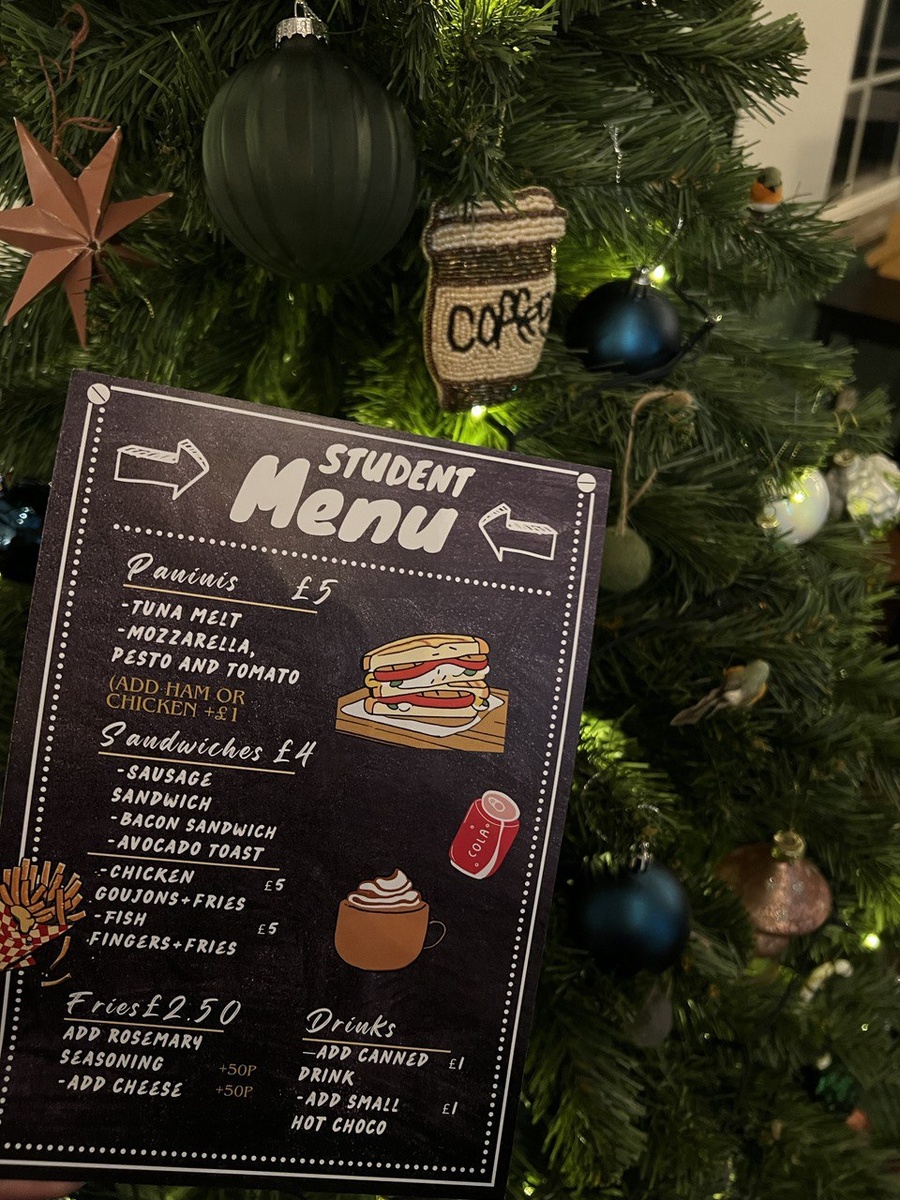 COFFEE
STUDENT
Menu
Paninis £5
-TUNA MELT
-MOZZARELLA,
PESTO AND TOMATO
(ADD HAM OR
CHICKEN +£1
Sandwiches £4
-SAUSAGE
SANDWICH
-BACON SANDWICH
-AVOCADO TOAST
-CHICKEN £5
GOUJONS+FRIES
-FISH £5
FINGERS+FRIES
COLA
Fries £2.50
ADD ROSEMARY
SEASONING +50P
-ADD CHEESE +50P
Drinks
-ADD CANNED £1
DRINK
-ADD SMALL £1
HOT CHOCO